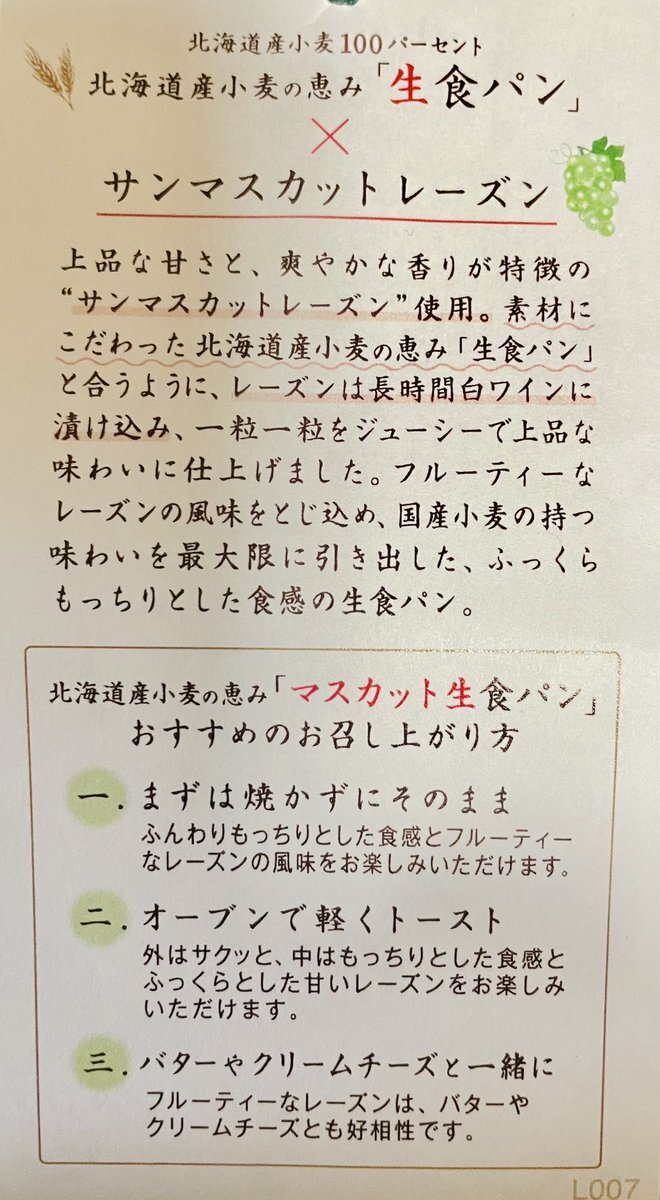 北海道産小麦100パーセント
北海道産小麦の恵み「生食パン」
×
サンマスカットレーズン
上品な甘さと、爽やかな香りが特徴の
“サンマスカットレーズン”使用。素材に
こだわった北海道産小麦の恵み「生食パン」
と合うように、レーズンは長時間白ワインに
漬け込み、一粒一粒をジューシーで上品な
味わいに仕上げました。フルーティーな
レーズンの風味をとじ込め、国産小麦の持つ
味わいを最大限に引き出した、ふっくら
もっちりとした食感の生食パン。
北海道産小麦の恵み「マスカット生食パン」
おすすめのお召し上がり方
一. まずは焼かずにそのまま
ふんわりもっちりとした食感とフルーティー
なレーズンの風味をお楽しみいただけます。
二. オーブンで軽くトースト
外はサクッと、中はもっちりとした食感と
ふっくらとした甘いレーズンをお楽しみ
いただけます。
三. バターやクリームチーズと一緒に
フルーティーなレーズンは、バターや
クリームチーズとも好相性です。
L007